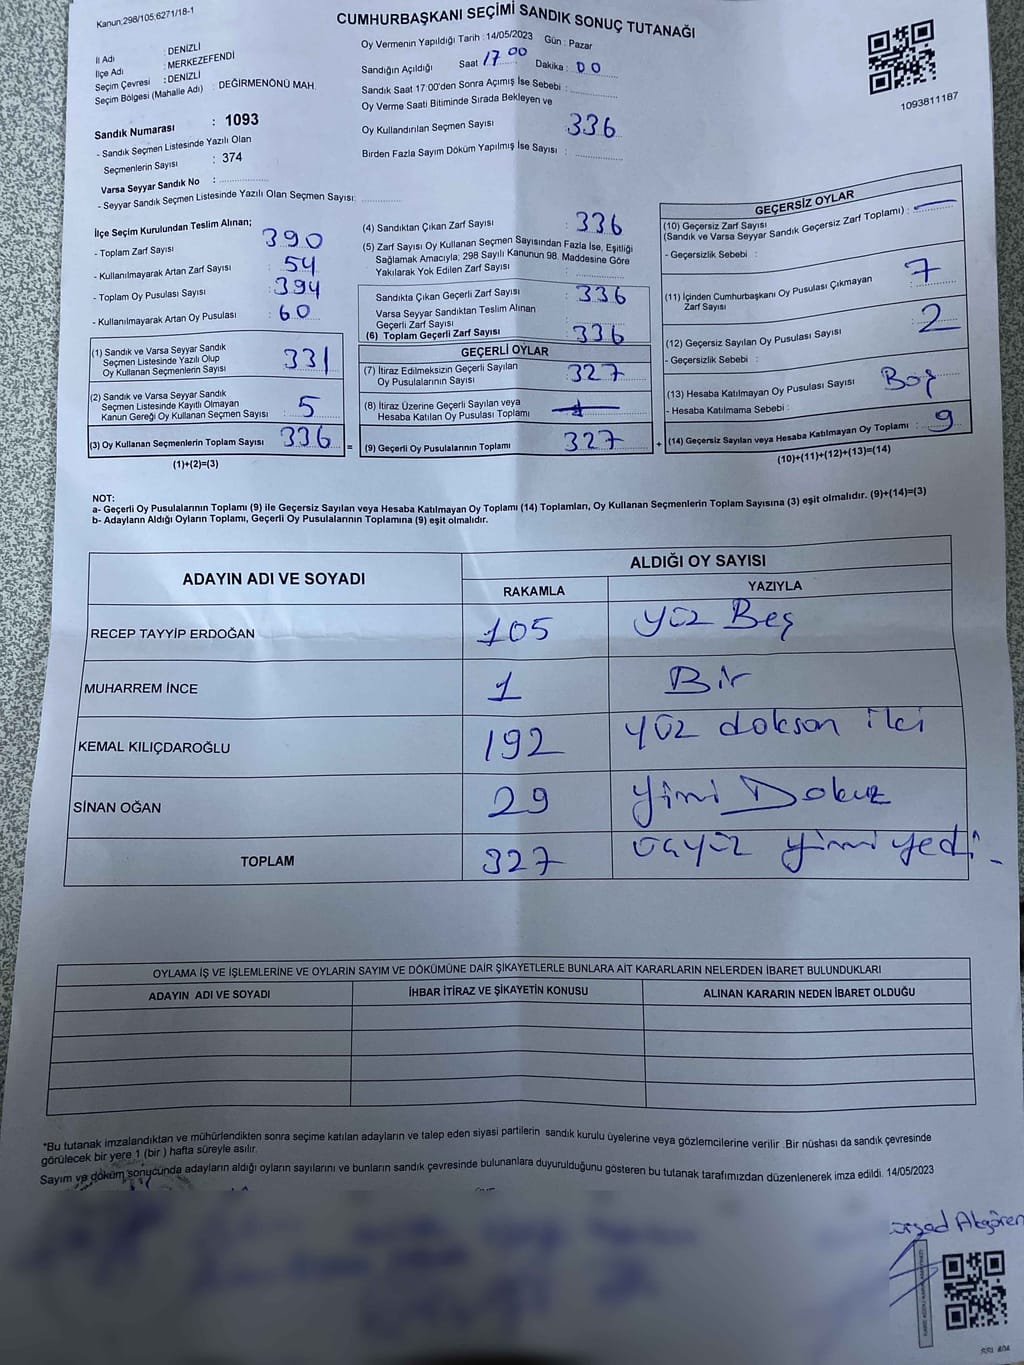 Kanun,298/105,6271/18-1
CUMHURBAŞKANI SEÇİMİ SANDIK SONUÇ TUTANAĞI
İl Adı : DENİZLİ
İlçe Adı : MERKEZEFENDİ
Seçim Çevresi : DENİZLİ
Seçim Bölgesi (Mahalle Adı) : DEĞİRMENÖNÜ MAH.
Oy Vermenin Yapıldığı Tarih : 14/05/2023 Gün : Pazar
Sandığın Açıldığı Saat 17 00 Dakika : 00
Sandık Saat 17:00'den Sonra Açımış İse Sebebi :
Oy Verme Saati Bitiminde Sırada Bekleyen ve
Oy Kullandırılan Seçmen Sayısı 336
Birden Fazla Sayım Döküm Yapılmış İse Sayısı :
1093811187
Sandık Numarası : 1093
- Sandık Seçmen Listesinde Yazılı Olan
Seçmenlerin Sayısı : 374
Varsa Seyyar Sandık No :
- Seyyar Sandık Seçmen Listesinde Yazılı Olan Seçmen Sayısı:
İlçe Seçim Kurulundan Teslim Alınan;
- Toplam Zarf Sayısı 390
- Kullanılmayarak Artan Zarf Sayısı : 54
- Toplam Oy Pusulası Sayısı : 394
- Kullanılmayarak Artan Oy Pusulası : 60
(1) Sandık ve Varsa Seyyar Sandık
Seçmen Listesinde Yazılı Olup
Oy Kullanan Seçmenlerin Sayısı : 331
(2) Sandık ve Varsa Seyyar Sandık
Seçmen Listesinde Kayıtlı Olmayan
Kanun Gereği Oy Kullanan Seçmen Sayısı : 5
(3) Oy Kullanan Seçmenlerin Toplam Sayısı : 336 =
(1)+(2)=(3)
(4) Sandıktan Çıkan Zarf Sayısı : 336
(5) Zarf Sayısı Oy Kullanan Seçmen Sayısından Fazla İse, Eşitliği
Sağlamak Amacıyla; 298 Sayılı Kanunun 98. Maddesine Göre
Yakılarak Yok Edilen Zarf Sayısı :
Sandıkta Çıkan Geçerli Zarf Sayısı : 336
Varsa Seyyar Sandıktan Teslim Alınan
Geçerli Zarf Sayısı
(6) Toplam Geçerli Zarf Sayısı : 336
GEÇERLİ OYLAR
(7) İtiraz Edilmeksizin Geçerli Sayılan
Oy Pusulalarının Sayısı : 327
(8) İtiraz Üzerine Geçerli Sayılan veya
Hesaba Katılan Oy Pusulası Toplamı
(9) Geçerli Oy Pusulalarının Toplamı : 327 +
GEÇERSİZ OYLAR
(10) Geçersiz Zarf Sayısı
(Sandık ve Varsa Seyyar Sandık Geçersiz Zarf Toplamı) : —
- Geçersizlik Sebebi :
(11) İçinden Cumhurbaşkanı Oy Pusulası Çıkmayan
Zarf Sayısı : 7
(12) Geçersiz Sayılan Oy Pusulası Sayısı : 2
- Geçersizlik Sebebi :
(13) Hesaba Katılmayan Oy Pusulası Sayısı : Boş
- Hesaba Katılmama Sebebi :
(14) Geçersiz Sayılan veya Hesaba Katılmayan Oy Toplamı : 9
(10)+(11)+(12)+(13)=(14)
NOT:
a- Geçerli Oy Pusulalarının Toplamı (9) ile Geçersiz Sayılan veya Hesaba Katılmayan Oy Toplamı (14) Toplamları, Oy Kullanan Seçmenlerin Toplam Sayısına (3) eşit olmalıdır. (9)+(14)=(3)
b- Adayların Aldığı Oyların Toplamı, Geçerli Oy Pusulalarının Toplamına (9) eşit olmalıdır.
ADAYIN ADI VE SOYADI ALDIĞI OY SAYISI
RAKAMLA YAZIYLA
RECEP TAYYİP ERDOĞAN 105 Yüz Beş
MUHARREM İNCE 1 Bir
KEMAL KILIÇDAROĞLU 192 Yüz doksan iki
SİNAN OĞAN 29 Yirmi Dokuz
TOPLAM 327 üçyüz yirmi yedi
OYLAMA İŞ VE İŞLEMLERİNE VE OYLARIN SAYIM VE DÖKÜMÜNE DAİR ŞİKAYETLERLE BUNLARA AİT KARARLARIN NELERDEN İBARET BULUNDUKLARI
ADAYIN ADI VE SOYADI İHBAR İTİRAZ VE ŞİKAYETİN KONUSU ALINAN KARARIN NEDEN İBARET OLDUĞU
*Bu tutanak imzalandıktan ve mühürlendikten sonra seçime katılan adayların ve talep eden siyasi partilerin sandık kurulu üyelerine veya gözlemcilerine verilir. Bir nüshası da sandık çevresinde
görülecek bir yere 1 (bir ) hafta süreyle asılır.
Sayım ve döküm sonucunda adayların aldığı oyların sayılarını ve bunların sandık çevresinde bulunanlara duyurulduğunu gösteren bu tutanak tarafımızdan düzenlenerek imza edildi. 14/05/2023
Akgören